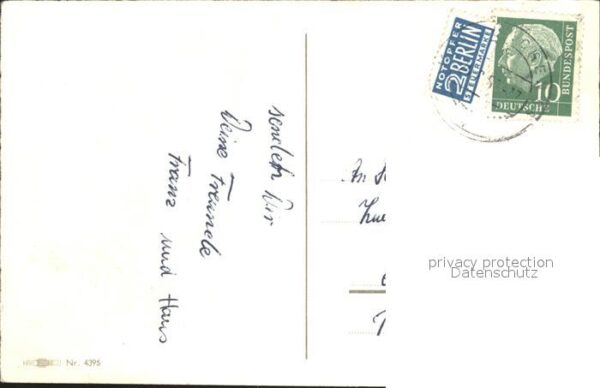 senden Dir
Deine Freunde
Franz und Hans
NOTOPFER
2 BERLIN
STEUERMARKE
DEUTSCHE
10
BUNDESPOST
An
privacy protection
Datenschutz
Nr. 4395